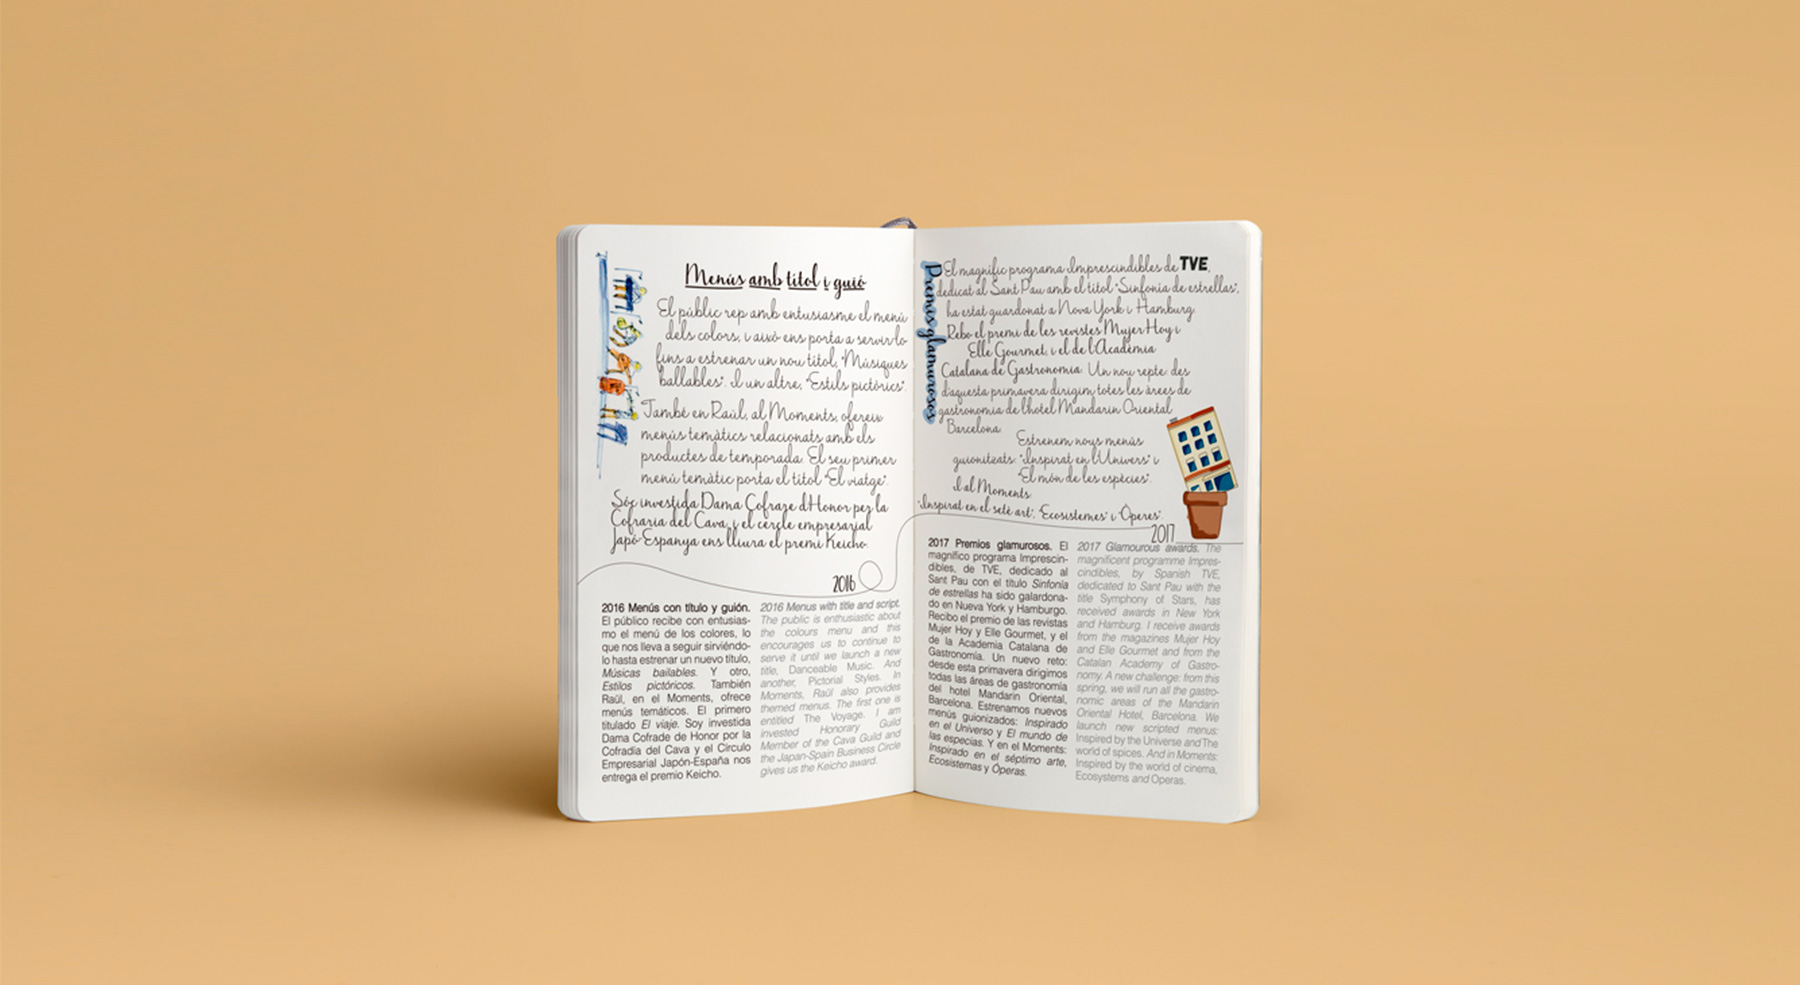 Menús amb títol i guió
El públic rep amb entusiasme el menú
dels colors, i això ens porta a servir-lo
fins a estrenar un nou títol, "Músiques
ballables". I un altre, "Estils pictòrics".
També en Raül, al Moments, ofereix
menús temàtics relacionats amb els
productes de temporada. El seu primer
menú temàtic porta el títol "El viatge".
Sóc investida Dama Cofrare d'Honor per la
Cofraria del Cava, i el cercle empresarial
Japó-Espanya ens lliura el premi Keicho.
2016
2016 Menús con título y guión.
El público recibe con entusias-
mo el menú de los colores, lo
que nos lleva a seguir sirviéndo-
lo hasta estrenar un nuevo título,
Músicas bailables. Y otro,
Estilos pictóricos. También
Raül, en el Moments, ofrece
menús temáticos. El primero
titulado El viaje. Soy investida
Dama Cofrade de Honor por la
Cofradía del Cava y el Círculo
Empresarial Japón-España nos
entrega el premio Keicho.
2016 Menus with title and script.
The public is enthusiastic about
the colours menu and this
encourages us to continue to
serve it until we launch a new
title, Danceable Music. And
another, Pictorial Styles. In
Moments, Raül also provides
themed menus. The first one is
entitled The Voyage. I am
invested Honorary Guild
Member of the Cava Guild and
the Japan-Spain Business Circle
gives us the Keicho award.
Premis glamurosos
El magnífic programa Imprescindibles de TVE,
dedicat al Sant Pau amb el títol "Sinfonía de estrellas",
ha estat guardonat a Nova York i Hamburg.
Rebo el premi de les revistes Mujer Hoy i
Elle Gourmet, i el de l'Acadèmia
Catalana de Gastronomia. Un nou repte: des
d'aquesta primavera dirigim totes les àrees de
gastronomia de l'hotel Mandarin Oriental
Barcelona.
Estrenem nous menús
guionitzats: "Inspirat en l'Univers" i
"El món de les espècies".
I al Moments:
"Inspirat en el setè art", "Ecosistemes" i "Òperes".
2017
2017 Premios glamurosos. El
magnífico programa Imprescin-
dibles, de TVE, dedicado al
Sant Pau con el título Sinfonía
de estrellas ha sido galardona-
do en Nueva York y Hamburgo.
Recibo el premio de las revistas
Mujer Hoy y Elle Gourmet, y el
de la Academia Catalana de
Gastronomía. Un nuevo reto:
desde esta primavera dirigimos
todas las áreas de gastronomía
del hotel Mandarin Oriental,
Barcelona. Estrenamos nuevos
menús guionizados: Inspirado
en el Universo y El mundo de
las especias. Y en el Moments:
Inspirado en el séptimo arte,
Ecosistemas y Óperas.
2017 Glamourous awards. The
magnificent programme Impres-
cindibles, by Spanish TVE,
dedicated to Sant Pau with the
title Symphony of Stars, has
received awards in New York
and Hamburg. I receive awards
from the magazines Mujer Hoy
and Elle Gourmet and from the
Catalan Academy of Gastro-
nomy. A new challenge: from this
spring, we will run all the gastro-
nomic areas of the Mandarin
Oriental Hotel, Barcelona. We
launch new scripted menus:
Inspired by the Universe and The
world of spices. And in Moments:
Inspired by the world of cinema,
Ecosystems and Operas.